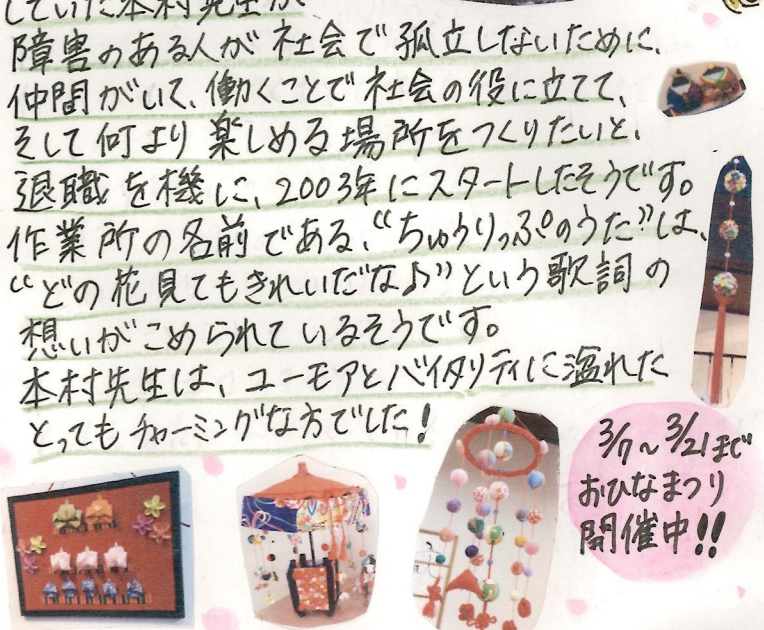 していた本村先生が
障害のある人が社会で孤立しないために、
仲間がいて、働くことで社会の役に立てて、
そして何より楽しめる場所をつくりたいと、
退職を機に、2003年にスタートしたそうです。
作業所の名前である、“ちゅうりっぷのうた”は、
“どの花見てもきれいだな♪”という歌詞の
想いがこめられているそうです。
本村先生は、ユーモアとバイタリティに溢れた
とってもチャーミングな方でした!
3/7〜3/21まで
おひなまつり
開催中!!